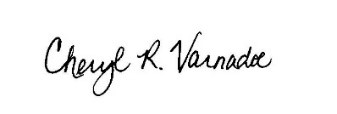 Cheryl R. Varnadoe